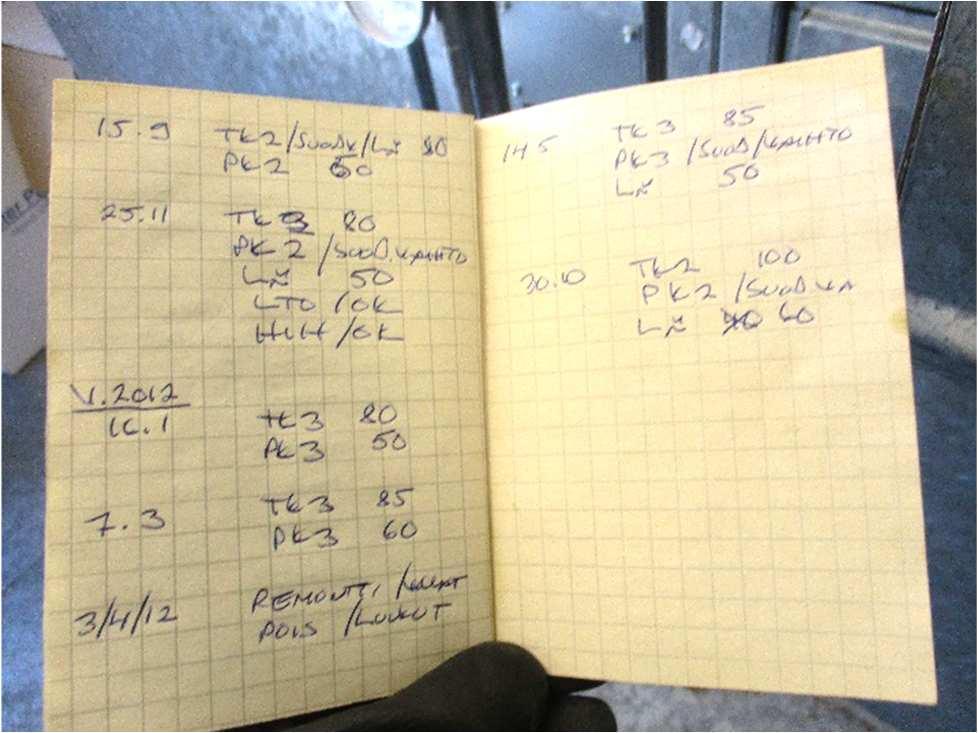 15.9 TK2/SUOD./LÄ 80
PK2 60
25.11 TK3 80
PK2 /SUOD.VAIHTO
LÄ 50
LTO /OK
HUH/OK
V.2012
16.1 TK3 80
PK3 50
7.3 TK3 85
PK3 60
3/4/12 REMONTTI
POIS /LUUKUT
14.5 TK3 85
PK3 /SUOD/VAIHTO
LÄ 50
30.10 TK2 100
PK2 /SUOD.VA
LÄ 60